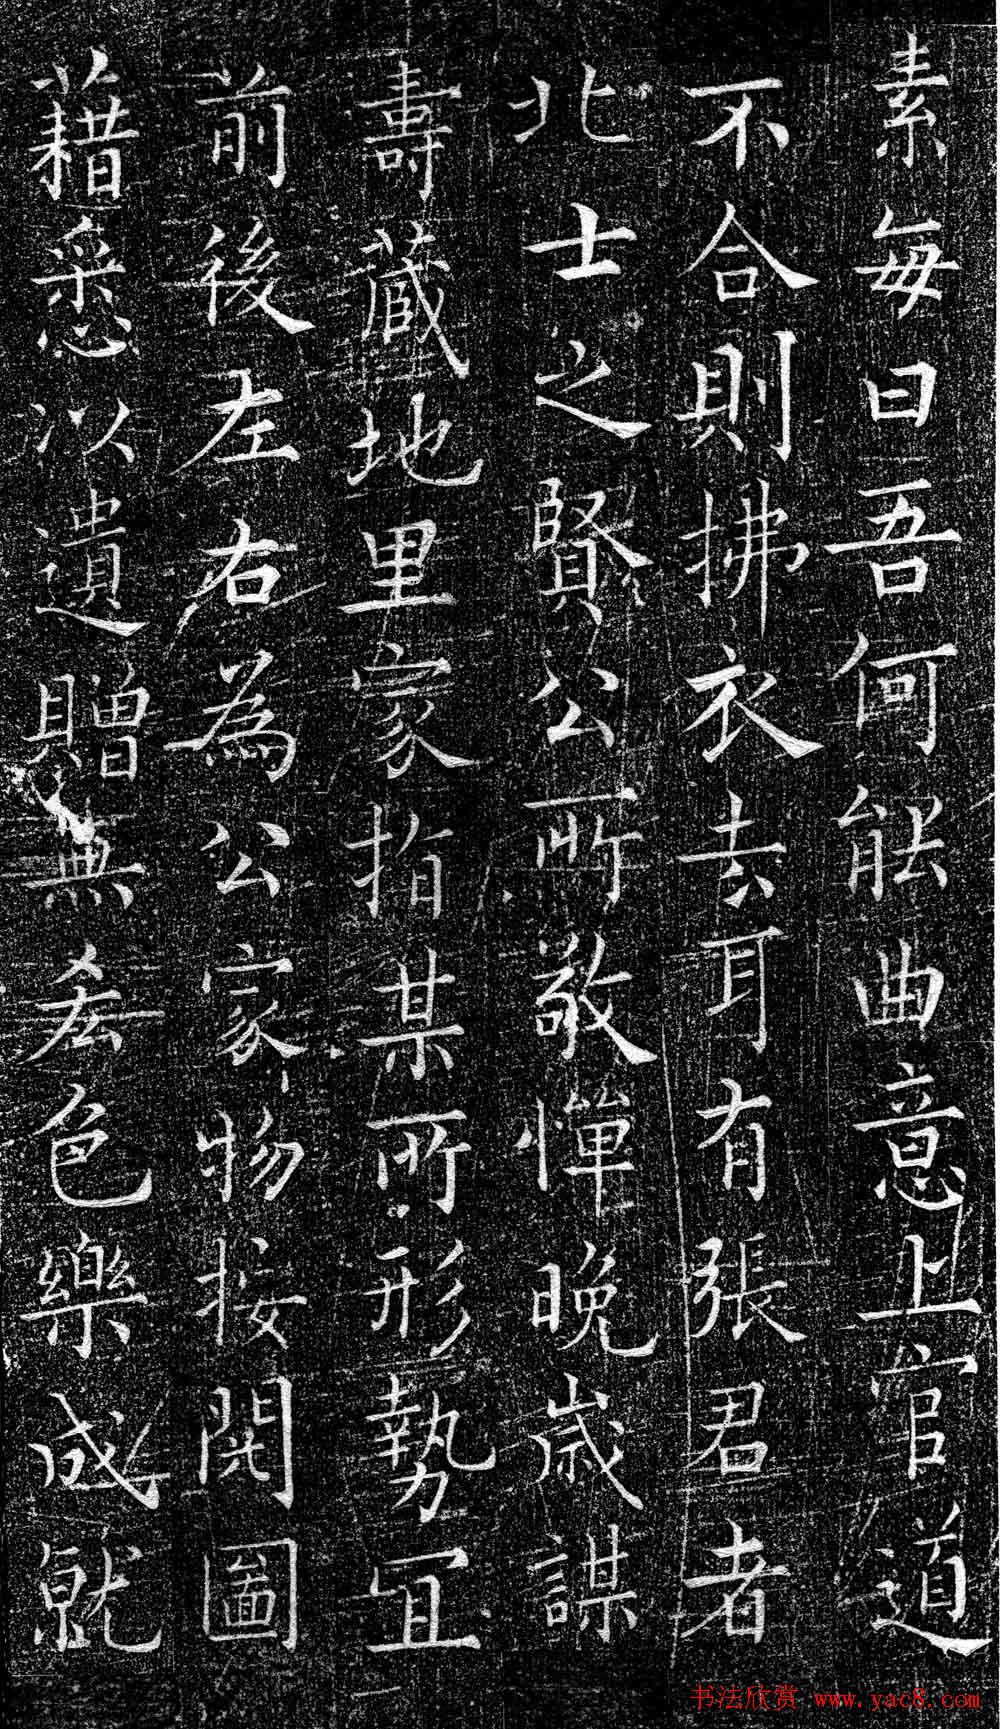 素每曰吾何能曲意上官道
不合則拂衣去耳有張君者
北士之賢公所敬憚晚歲謀
壽藏地里家指某所形勢宜
前後左右為公家物按開圖
藉悉以遺贈無吝色樂成就
书法欣赏 www.yac8.com